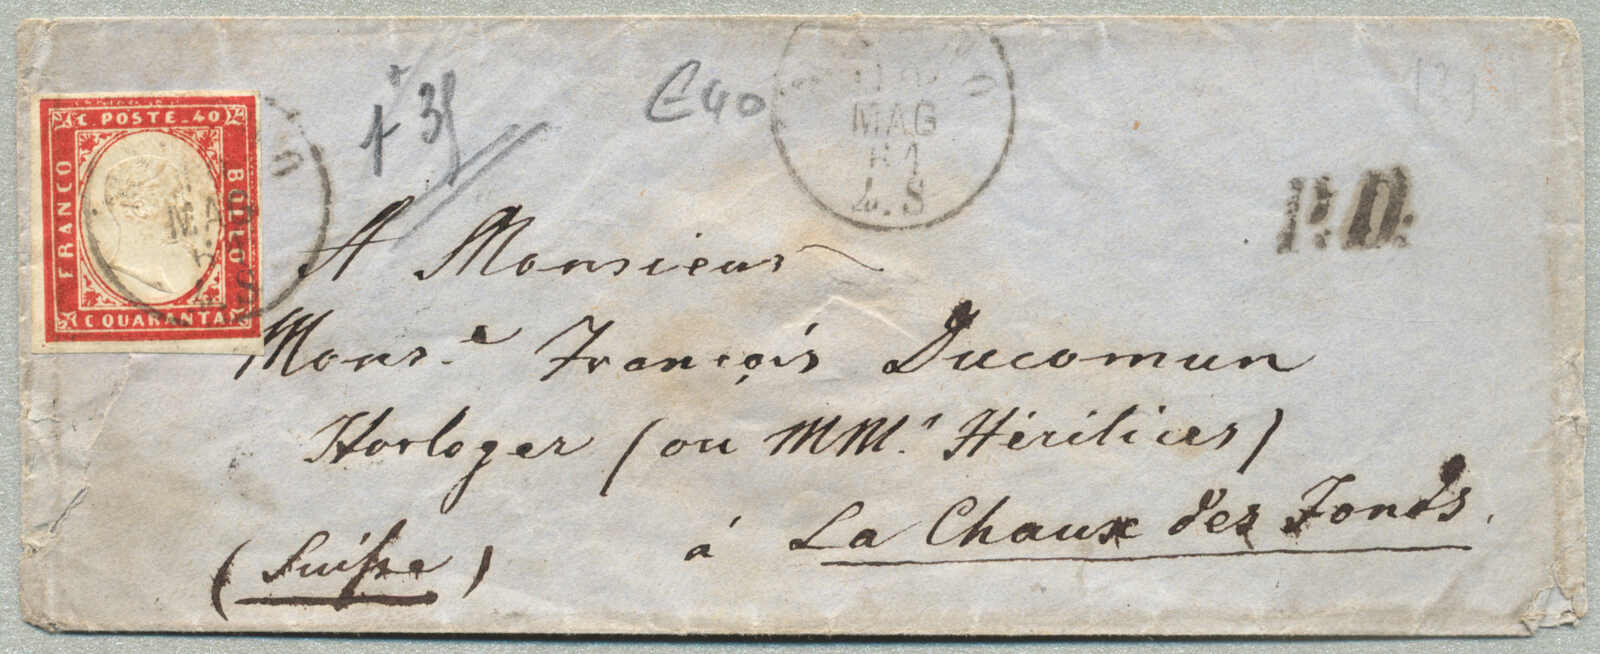 C POSTE_40
FRANCO
BOLLO
C QUARANTA
MAG
35
C 40
MAG
61
2.S
P.D.
A Monsieur
Monsr. François Ducomun
Horloger (ou MMrs Héritiers)
à La Chaux des Fonds.
(Suisse)